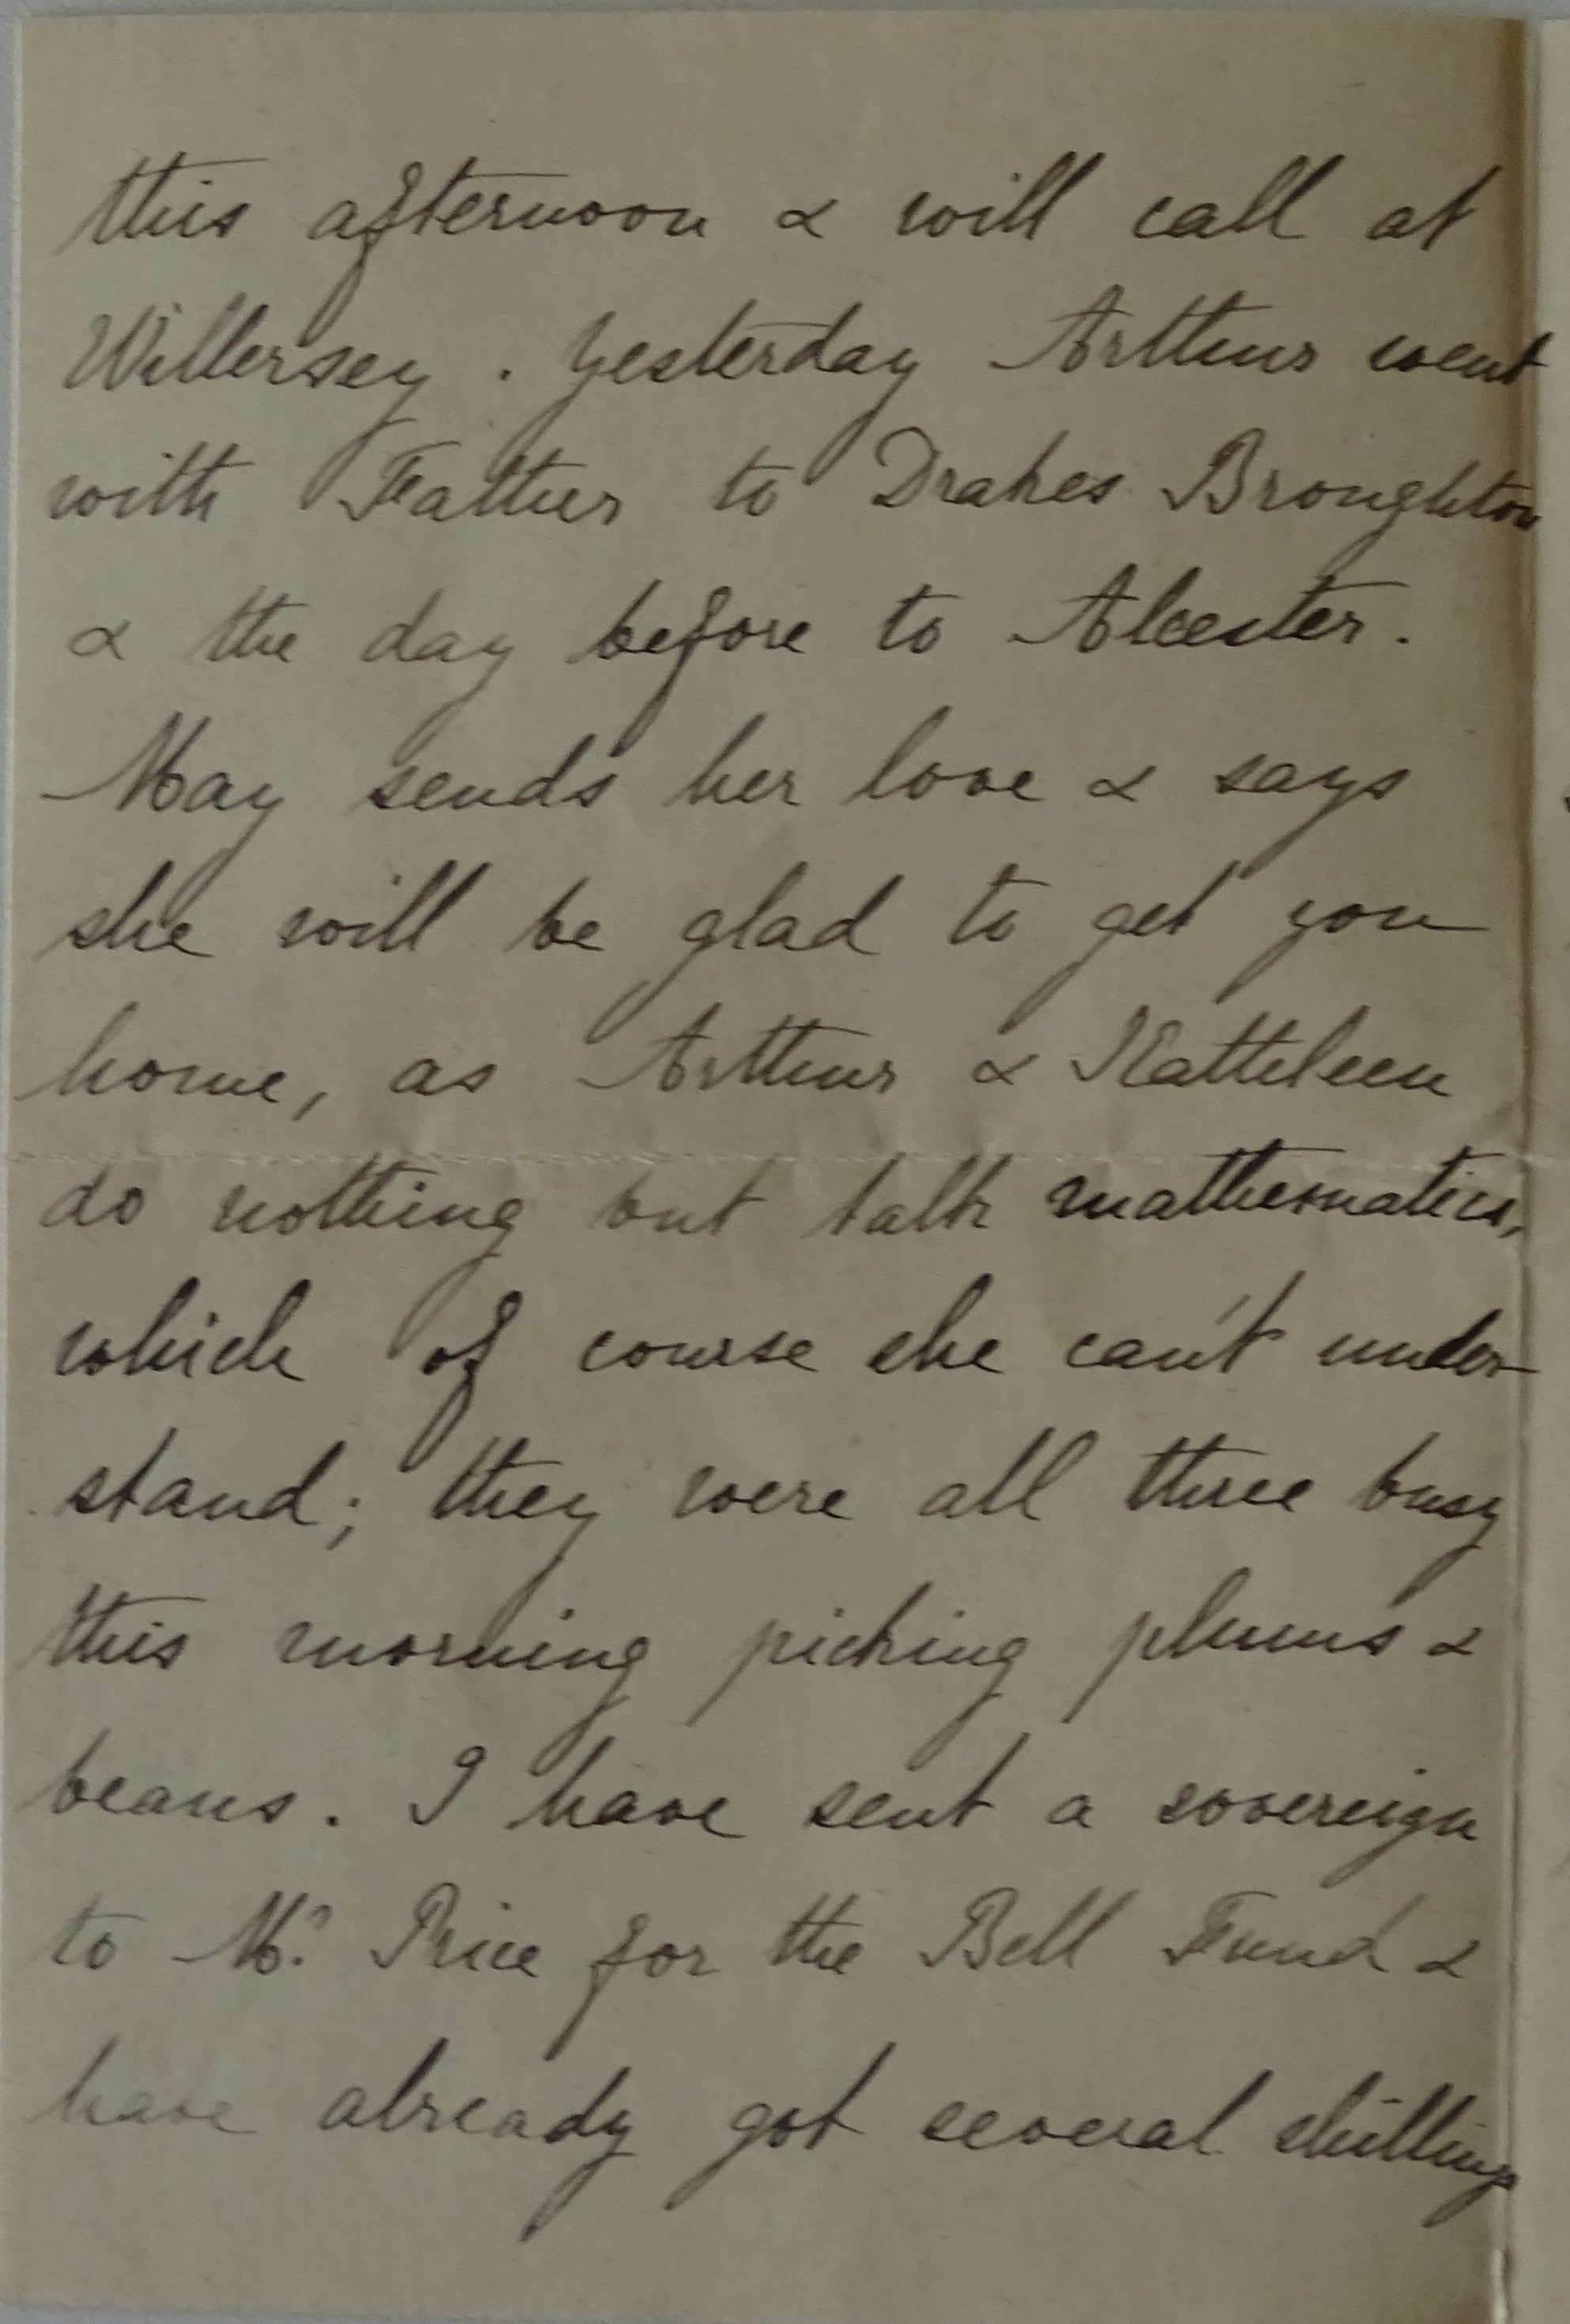 this afternoon & will call at
Willersey. Yesterday Arthur went
with Father to Drakes Broughton
& the day before to Alcester.
May sends her love & says
she will be glad to get you
home, as Arthur & Kathleen
do nothing but talk mathematics,
which of course she can't under-
stand; they were all three busy
this morning picking plums &
beans. I have sent a sovereign
to Mr. Price for the Bell Fund &
have already got several shillings